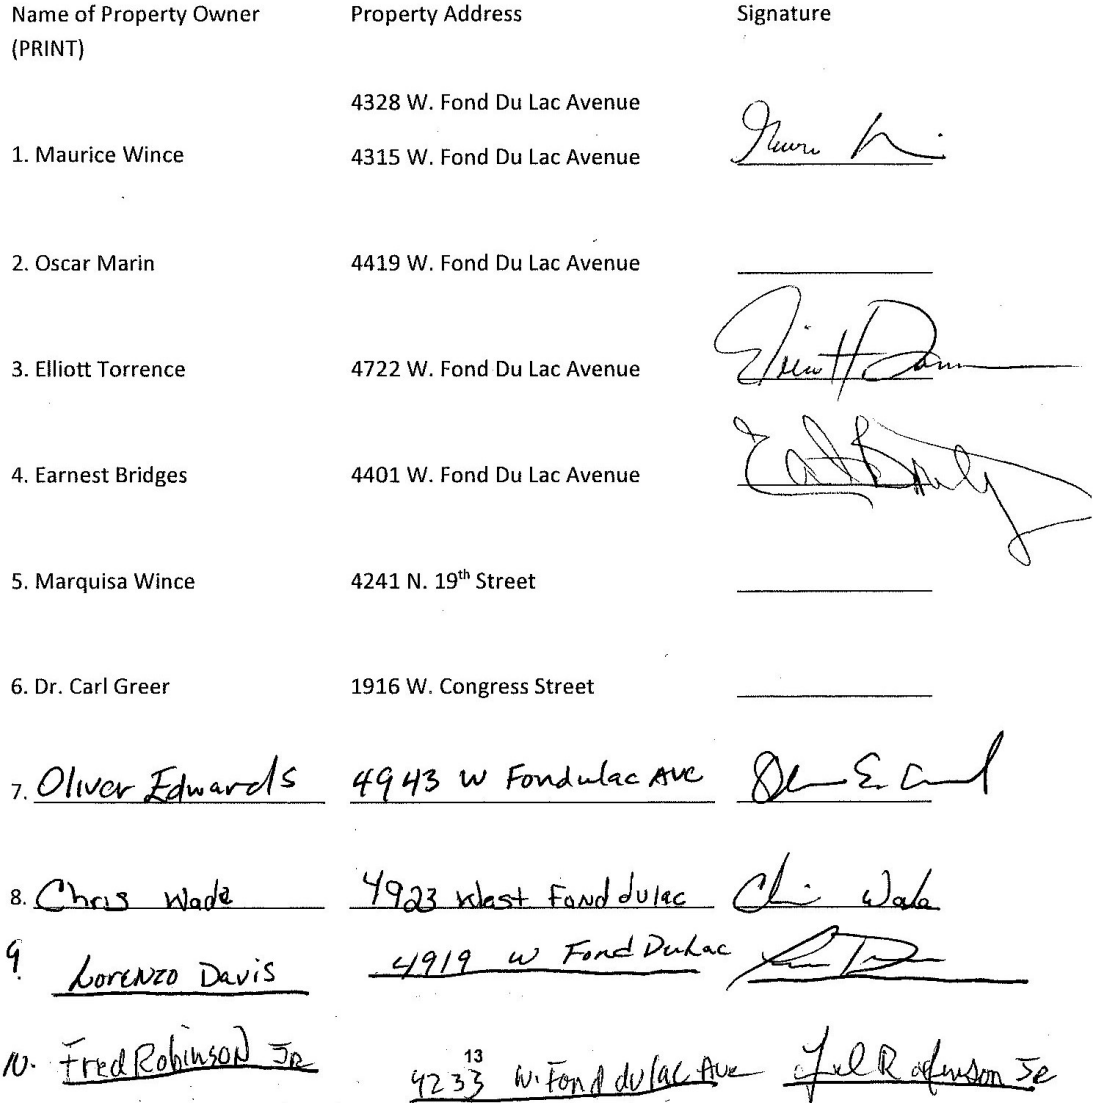 Name of Property Owner Property Address Signature
(PRINT)
4328 W. Fond Du Lac Avenue
1. Maurice Wince 4315 W. Fond Du Lac Avenue
2. Oscar Marin 4419 W. Fond Du Lac Avenue
3. Elliott Torrence 4722 W. Fond Du Lac Avenue
4. Earnest Bridges 4401 W. Fond Du Lac Avenue
5. Marquisa Wince 4241 N. 19th Street
6. Dr. Carl Greer 1916 W. Congress Street
7. Oliver Edwards 4943 W Fondulac Ave
8. Chris Wade 4923 West Fond dulac
9. Lorenzo Davis 4919 W Fond DuLac
10. Fred Robinson JR 4233 W. Fond du lac Ave Fred Robinson Jr
13